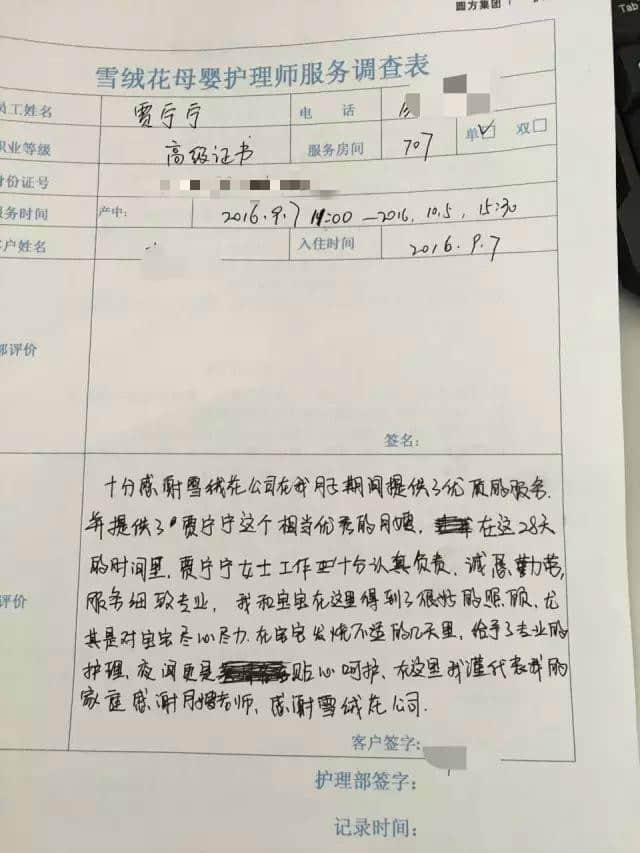 圆方集团
Tab
雪绒花母婴护理师服务调查表
员工姓名 贾宁宁 电 话
职业等级 高级证书 服务房间 707 单☑ 双☐
身份证号
服务时间 产中: 2016.9.7 11:00—2016.10.5, 15:30
客户姓名 入住时间 2016.9.7
部评价
签名:
十分感谢雪绒花公司在我月子期间提供了优质的服务.
并提供了贾宁宁这个相当优秀的月嫂, 在这28天
的时间里, 贾宁宁女士工作十分认真负责、诚恳勤劳,
服务细致专业, 我和宝宝在这里得到了很好的照顾, 尤
其是对宝宝尽心尽力. 在宝宝发烧不适的几天里, 给予了专业的
护理, 夜间更是贴心呵护, 在这里我谨代表我的
家庭感谢月嫂老师, 感谢雪绒花公司.
评价
客户签字:
护理部签字:
记录时间: